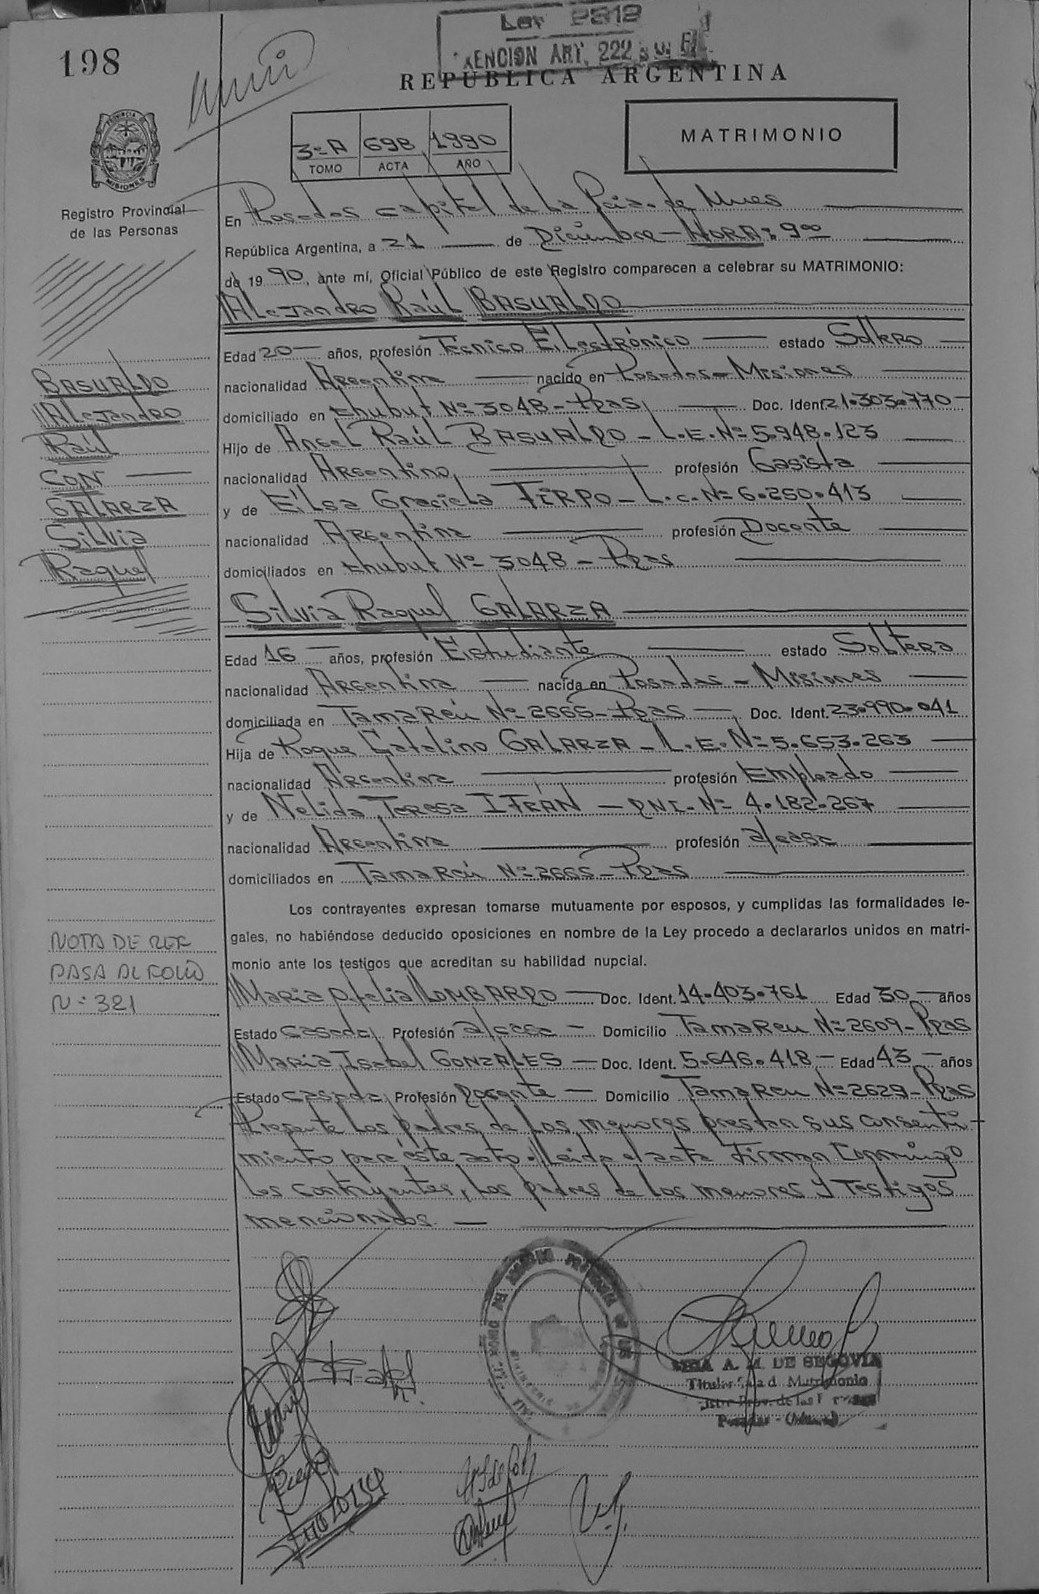 Ley 2812
198
REPUBLICA ARGENTINA
3-A 698 1990
TOMO ACTA AÑO
MATRIMONIO
PROVINCIA
MISIONES
Registro Provincial
de las Personas
En Posadas capital de la de
República Argentina, a 21 de Diciembre - HORA: 9 00
de 19 90, ante mí, Oficial Público de este Registro comparecen a celebrar su MATRIMONIO:
Alejandro Raúl BASUALDO
Edad 20 años, profesión Tecnico Electrónico estado Soltero
nacionalidad Argentina nacido en Posadas - Misiones
domiciliado en Chubut Nº 3048 - Pdas Doc. Ident. 21.303.770
Hijo de Angel Raúl BASUALDO - L.E. Nº 5.948.123
nacionalidad Argentino profesión Gasista
y de Elsa Graciela FIRPO - L.C. Nº 6.250.413
nacionalidad Argentina profesión Docente
domiciliados en Chubut Nº 3048 - Pdas
BASUALDO
Alejandro
Raúl
CON
GALARZA
Silvia
Raquel
Silvia Raquel GALARZA
Edad 16 años, profesión Estudiante estado Soltera
nacionalidad Argentina nacida en Posadas - Misiones
domiciliada en Tamareú Nº 2665 - Pdas Doc. Ident. 23.990.041
Hija de Roque Catalino GALARZA - L.E. Nº 5.653.263
nacionalidad Argentina profesión Empleado
y de Nelida Teresa ITFRAN - DNI. Nº 4.182.267
nacionalidad Argentina profesión a/casa
domiciliados en Tamareú Nº 2665 - Pdas
Los contrayentes expresan tomarse mutuamente por esposos, y cumplidas las formalidades le-
gales, no habiéndose deducido oposiciones en nombre de la Ley procedo a declararlos unidos en matri-
monio ante los testigos que acreditan su habilidad nupcial.
NOTA DE REF
PASA AL FOLIO
Nº 321
Maria Ofelia LOMBARDO Doc. Ident. 14.403.761 Edad 30 años
Estado casada Profesión a/casa Domicilio Tamareu Nº 2609 - Pdas
Maria Isabel GONZALES Doc. Ident. 5.646.418 Edad 43 años
Estado casada Profesión Docente Domicilio Tamareu Nº 2629 - Pdas
Presente los padres de los menores prestan sus consenti-
miento para éste acto. Leida el acta firman conmigo
los contrayentes, los padres de los menores y Testigos
mencionados.
A. M. DE SEGOVIA
Matrimonio
Prov. de las
Posadas - (Misiones)